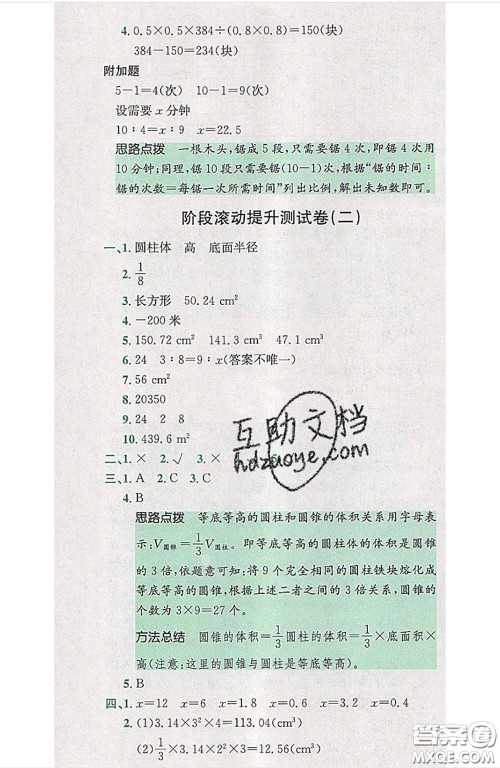 4. 0.5×0.5×384÷(0.8×0.8)=150(块)
384-150=234(块)
附加题
5-1=4(次) 10-1=9(次)
设需要 x 分钟
10∶4=x∶9 x=22.5
思路点拨 一根木头,锯成5段,只需要锯4次,即锯4次用
10分钟;同理,锯10段只需要锯(10-1)次,根据“锯的时间:
锯的次数=每锯一次所需时间”列出比例,解出未知数即可。
阶段滚动提升测试卷(二)
一、1. 圆柱体 高 底面半径
2. 1/8
3. 长方形 50.24 cm²
4. -200米
5. 150.72 cm² 141.3 cm³ 47.1 cm³
6. 24 3∶8=9∶x(答案不唯一)
7. 56 cm²
8. 20350
9. 24 2 8
10. 439.6 m²
二、1. × 2. √ 3. ×
三、1. A 2. C 3. C
4. B
思路点拨 等底等高的圆柱和圆锥的体积关系用字母表
示:V圆锥=1/3V圆柱。即等底等高的圆柱体的体积是圆锥
的3倍,依题意可知:将9个完全相同的圆柱铁块熔化成
等底等高的圆锥,根据上述二者之间的3倍关系,圆锥的
个数为3×9=27个。
方法总结 圆锥的体积=1/3圆柱的体积=1/3×底面积×
高(注意:这里的圆锥与圆柱是等底等高)
5. B
四、1. x=12 x=6 x=1.8 x=0.6 x=3.2 x=0.4
2. (1)3.14×3²×4=113.04(cm³)
(2)1/3×3.14×2²×3=12.56(cm³)
互助文档
hdzuoye.com
答案圈
MXQE.COM